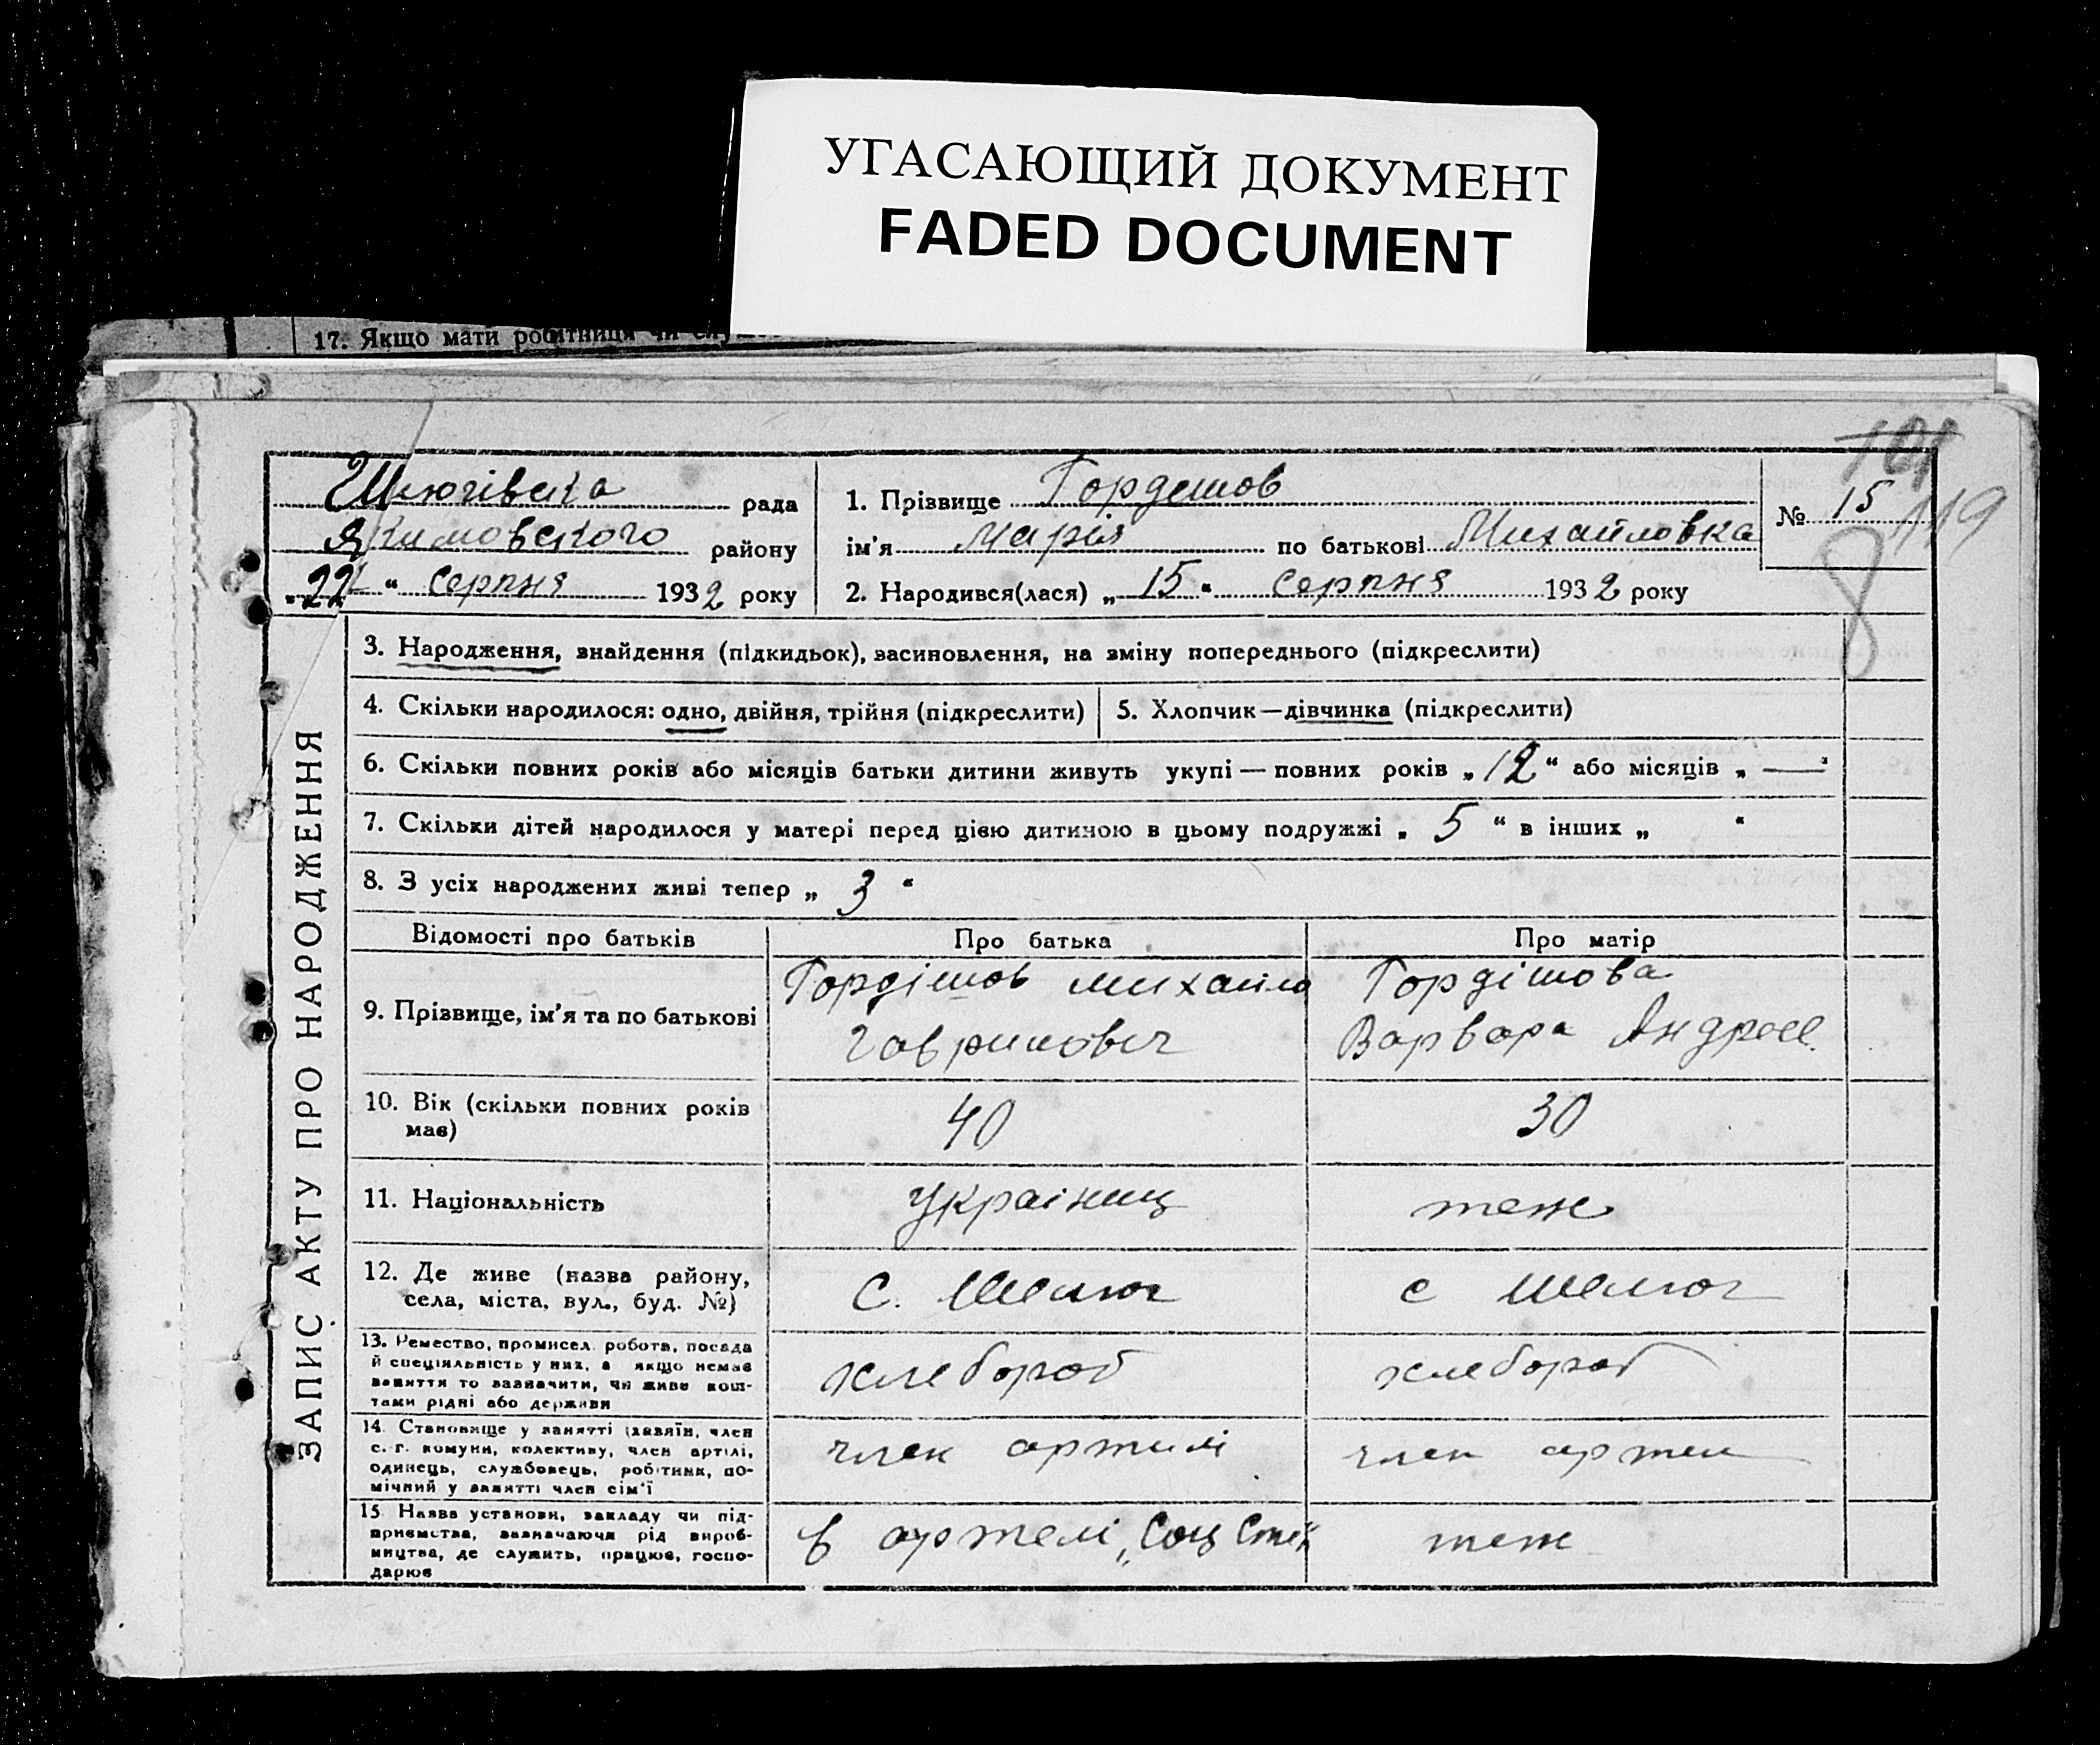 УГАСАЮЩИЙ ДОКУМЕНТ
FADED DOCUMENT
17. Якщо мати робітниця чи
101
119
8
Шелюгівска рада
Якимовского району
„22“ серпня 1932 року
1. Прізвище Гордешов
ім'я Марія по батькові Михайловка
2. Народився(лася) „15“ серпня 1932 року
№ 15
ЗАПИС АКТУ ПРО НАРОДЖЕННЯ
3. Народження, знайдення (підкидьок), засиновлення, на зміну попереднього (підкреслити)
4. Скільки народилося: одно, двійня, трійня (підкреслити)
5. Хлопчик—дівчинка (підкреслити)
6. Скільки повних років або місяців батьки дитини живуть укупі — повних років „12“ або місяців „—“
7. Скільки дітей народилося у матері перед цією дитиною в цьому подружжі „5“ в інших „ “
8. З усіх народжених живі тепер „3“
Відомості про батьків
Про батька
Про матір
9. Прізвище, ім'я та по батькові
Гордішов Михайло
Гаврилович
Гордішова
Варвара Андрее.
10. Вік (скільки повних років
має)
40
30
11. Національність
Українец
теж
12. Де живе (назва району,
села, міста, вул., буд. №)
С. Шелюг
с Шелюг
13. Ремество, промисел, робота, посада
й спеціяльність у них, а якщо немає
заняття то зазначити, чи живе кош-
тами рідні або держави
хлебороб
хлебороб
14. Становище у занятті (хазяїн, член
с.-г. комуни, колективу, член артілі,
одинець, службовець, робітник, по-
мічний у занятті член сім'ї
член артилі
член артели
15. Назва установи, закладу чи під-
приємства, зазначаючи рід вироб-
ництва, де служить, працює, госпо-
дарює
в артелі „Соц Степ
теж